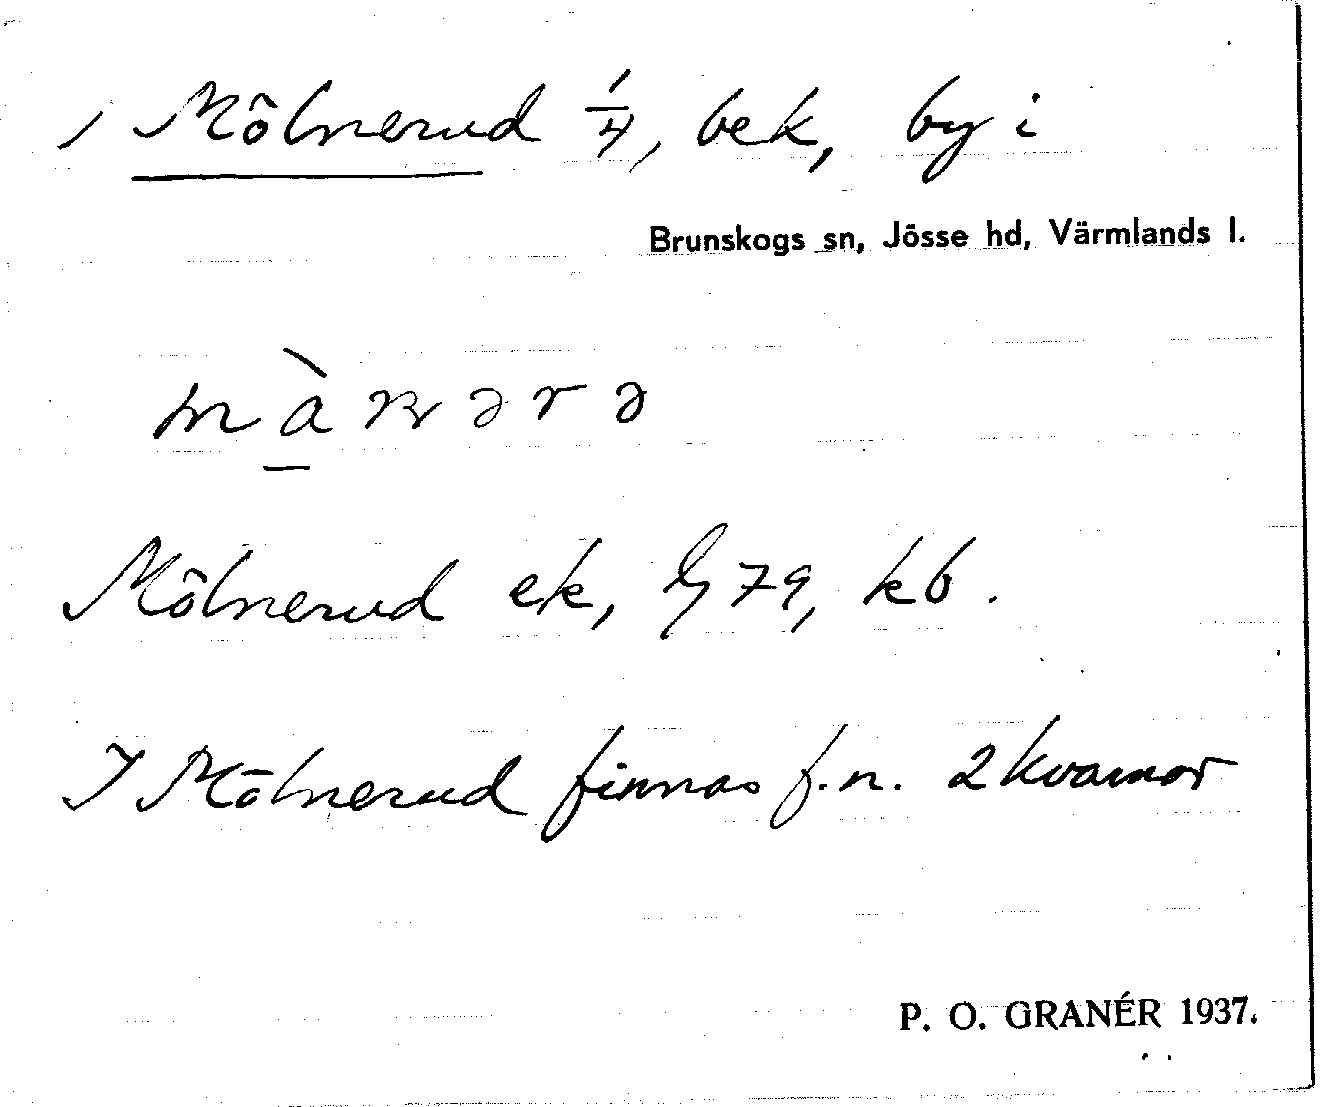 1 Mölnerud 1/4, bek, by i
Brunskogs sn, Jösse hd, Värmlands l.
Mölnerud ek, 79, kb.
I Mölnerud finnas f.n. 2 kvarnar
P. O. GRANÉR 1937.